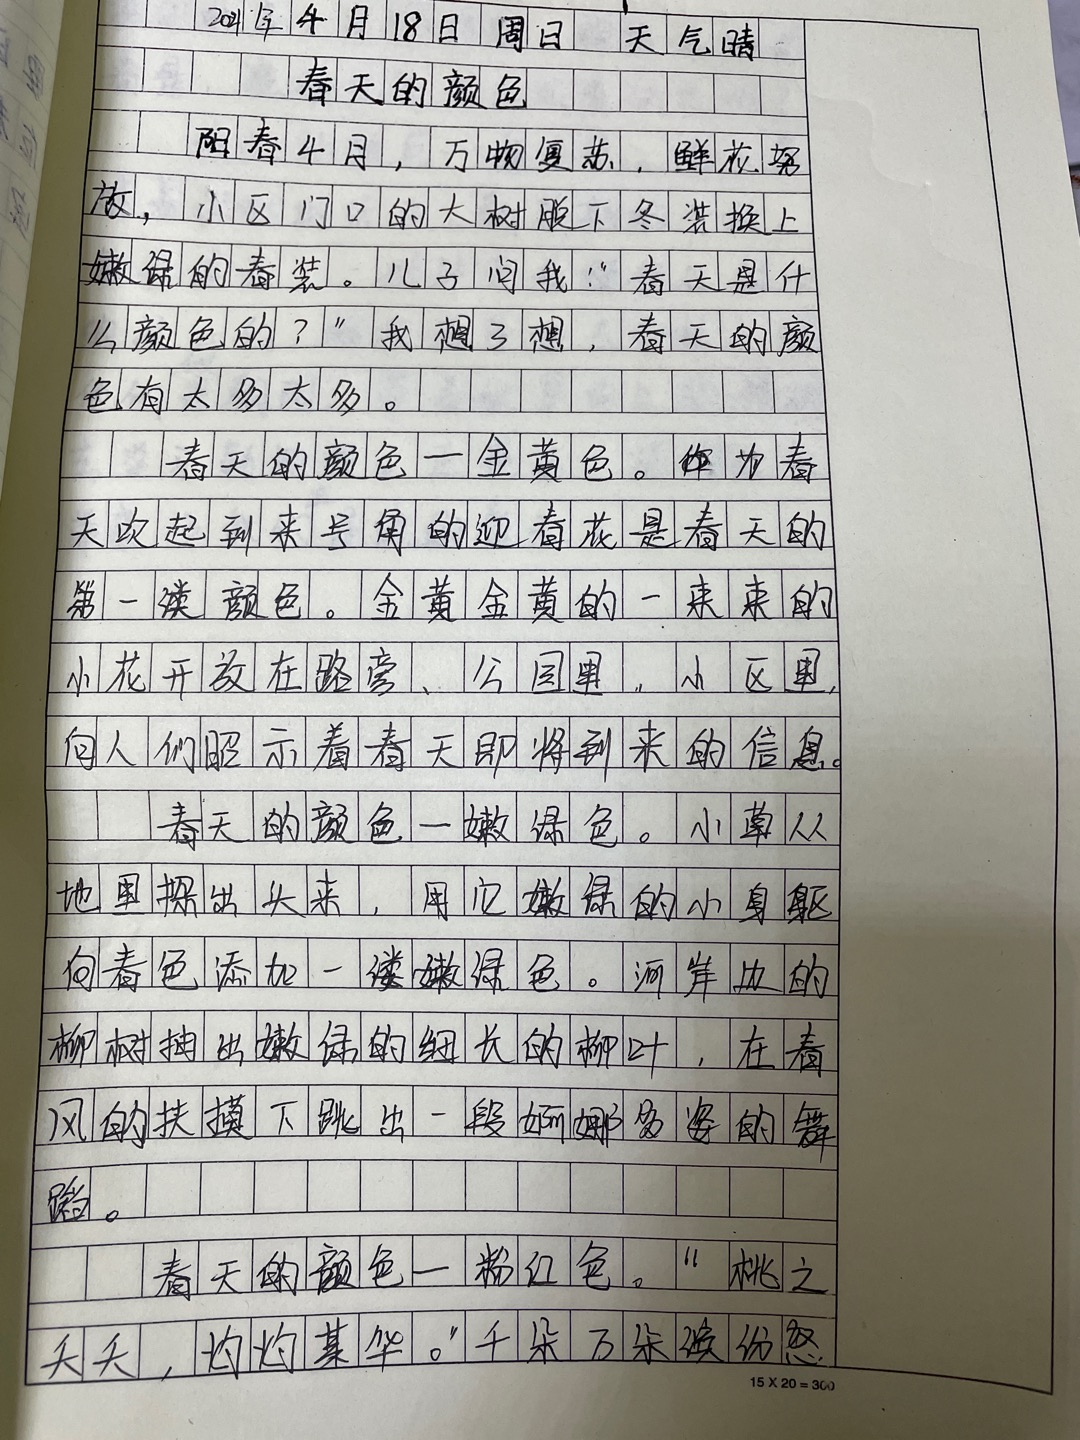 2021年4月18日 周日 天气晴
春天的颜色
阳春4月，万物复苏，鲜花努
放，小区门口的大树脱下冬装换上
嫩绿的春装。儿子问我：“春天是什
么颜色的？”我想了想，春天的颜
色有太多太多。
春天的颜色一金黄色。作为春
天吹起到来号角的迎春花是春天的
第一缕颜色。金黄金黄的一来来的
小花开放在路旁、公园里，小区里，
向人们昭示着春天即将到来的信息。
春天的颜色一嫩绿色。小草从
地里探出头来，用它嫩绿的小身躯
向春色添加一缕嫩绿色。河岸边的
柳树抽出嫩绿的细长的柳叶，在春
风的扶摸下跳出一段婀娜多姿的舞
蹈。
春天的颜色一粉红色。“桃之
夭夭，灼灼某华。”千朵万朵缤份
15 X 20 = 300